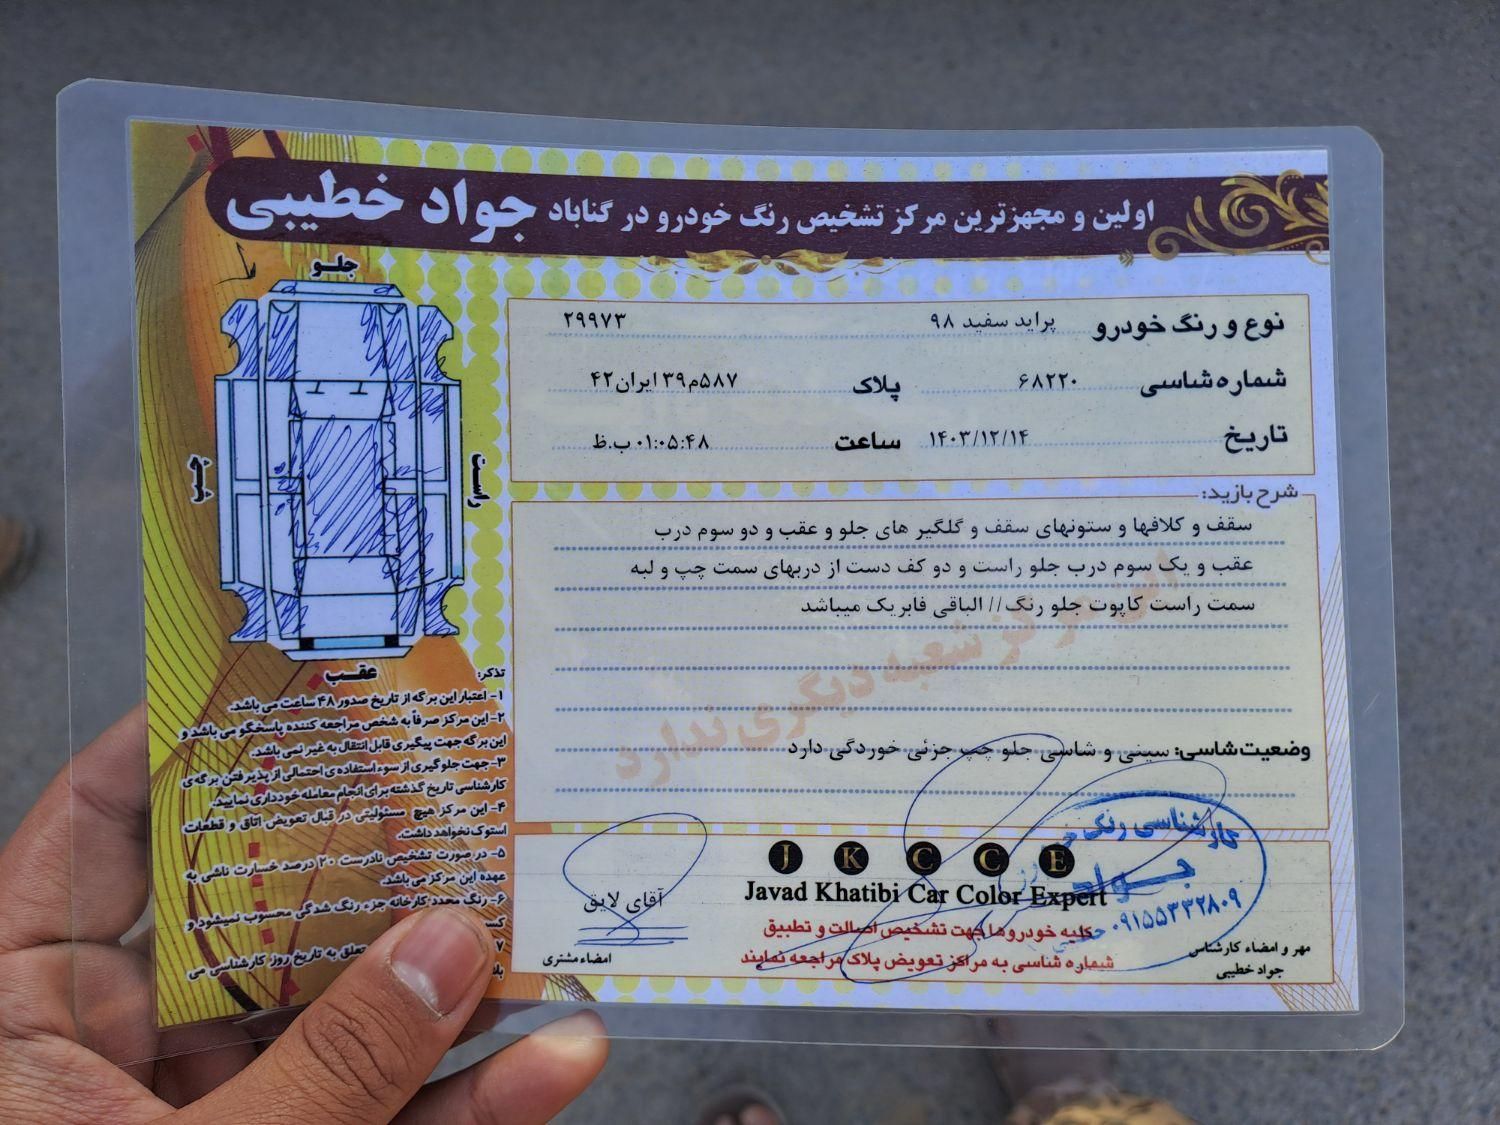 اولین و مجهزترین مرکز تشخیص رنگ خودرو در گناباد جواد خطیبی
نوع و رنگ خودرو پراید سفید ۹۸ ۲۹۹۷۳
شماره شاسی ۶۸۲۲۰ پلاک ۵۸۷م۳۹ ایران۴۲
تاریخ ۱۴۰۳/۱۲/۱۴ ساعت ۰۱:۰۵:۴۸ ب.ظ
شرح بازید:
سقف و کلافها و ستونهای سقف و گلگیر های جلو و عقب و دو سوم درب
عقب و یک سوم درب جلو راست و دو کف دست از دربهای سمت چپ و لبه
سمت راست کاپوت جلو رنگ// الباقی فابریک میباشد
مرکز شعبه دیگری ندارد
وضعیت شاسی: سینی و شاسی جلو چپ جزئی خوردگی دارد
جلو
چپ
راست
عقب
تذکر:
۱- اعتبار این برگه از تاریخ صدور ۴۸ ساعت می باشد.
۲- این مرکز صرفاً به شخص مراجعه کننده پاسخگو می باشد و
این برگه جهت پیگیری قابل انتقال به غیر نمی باشد.
۳- جهت جلوگیری از سوء استفاده ی احتمالی از پذیرفتن برگه ی
کارشناسی تاریخ گذشته برای انجام معامله خودداری نمایید.
۴- این مرکز هیچ مسئولیتی در قبال تعویض اتاق و قطعات
استوک نخواهد داشت.
۵- در صورت تشخیص نادرست ۲۰ درصد خسارت ناشی به
عهده این مرکز می باشد.
۶- رنگ مجدد کارخانه جزء رنگ شدگی محسوب نمیشود و
کسـ
۷ تعلق به تاریخ روز کارشناسی می
باشد
آقای لایق
امضاء مشتری
J K C C E
Javad Khatibi Car Color Expert
کلیه خودروها جهت تشخیص اصالت و تطبیق
شماره شاسی به مراکز تعویض پلاک مراجعه نمایند
کارشناسی رنگ
جواد
۰۹۱۵۵۳۳۲۸۰۹
مهر و امضاء کارشناس
جواد خطیبی